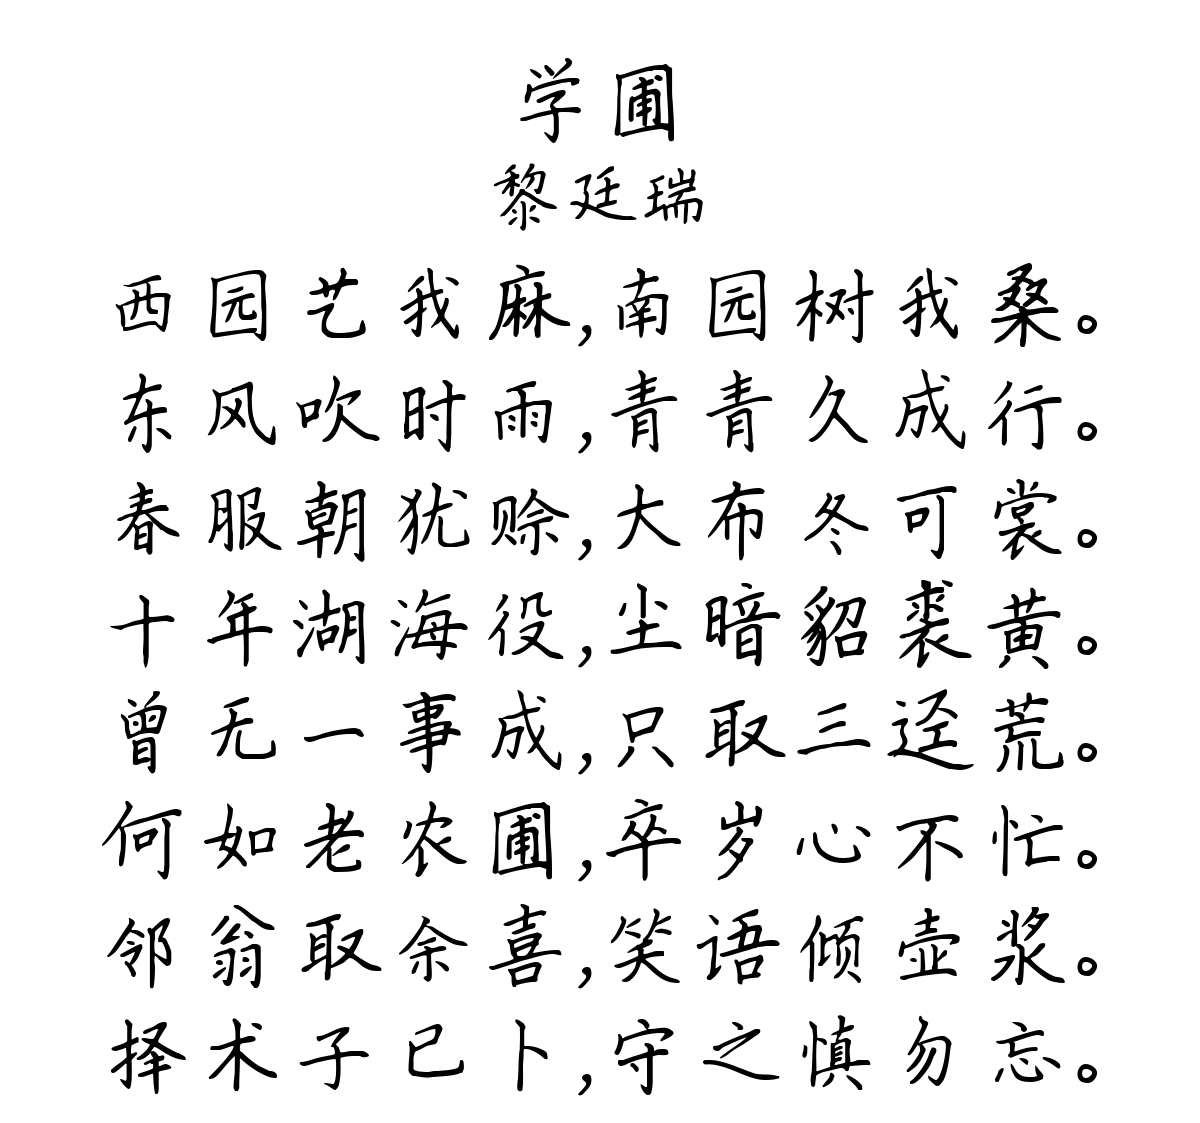 学圃
黎廷瑞
西园艺我麻,南园树我桑。
东风吹时雨,青青久成行。
春服朝犹赊,大布冬可裳。
十年湖海役,尘暗貂裘黄。
曾无一事成,只取三迳荒。
何如老农圃,卒岁心不忙。
邻翁取余喜,笑语倾壶浆。
择术子已卜,守之慎勿忘。